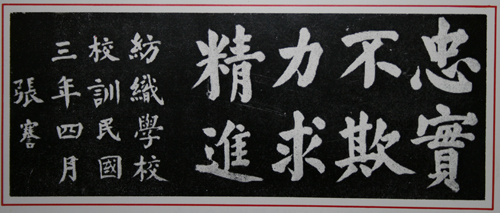 忠實
不欺
力求
精進
紡織學校
校訓民國
三年四月
張謇